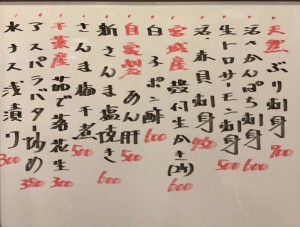 天然ぶり刺身 900
活〆かんぱち刺身 600
生トロサーモン刺身 500
活赤貝刺身 980
宮城産殻付生かき(2ヶ) 600
白子ポン酢 600
自家製あん肝 500
新さんま塩焼き 600
さんま梅干煮 500
千葉産茹で落花生 300
アスパラバター炒め 380
水ナス浅漬り 300